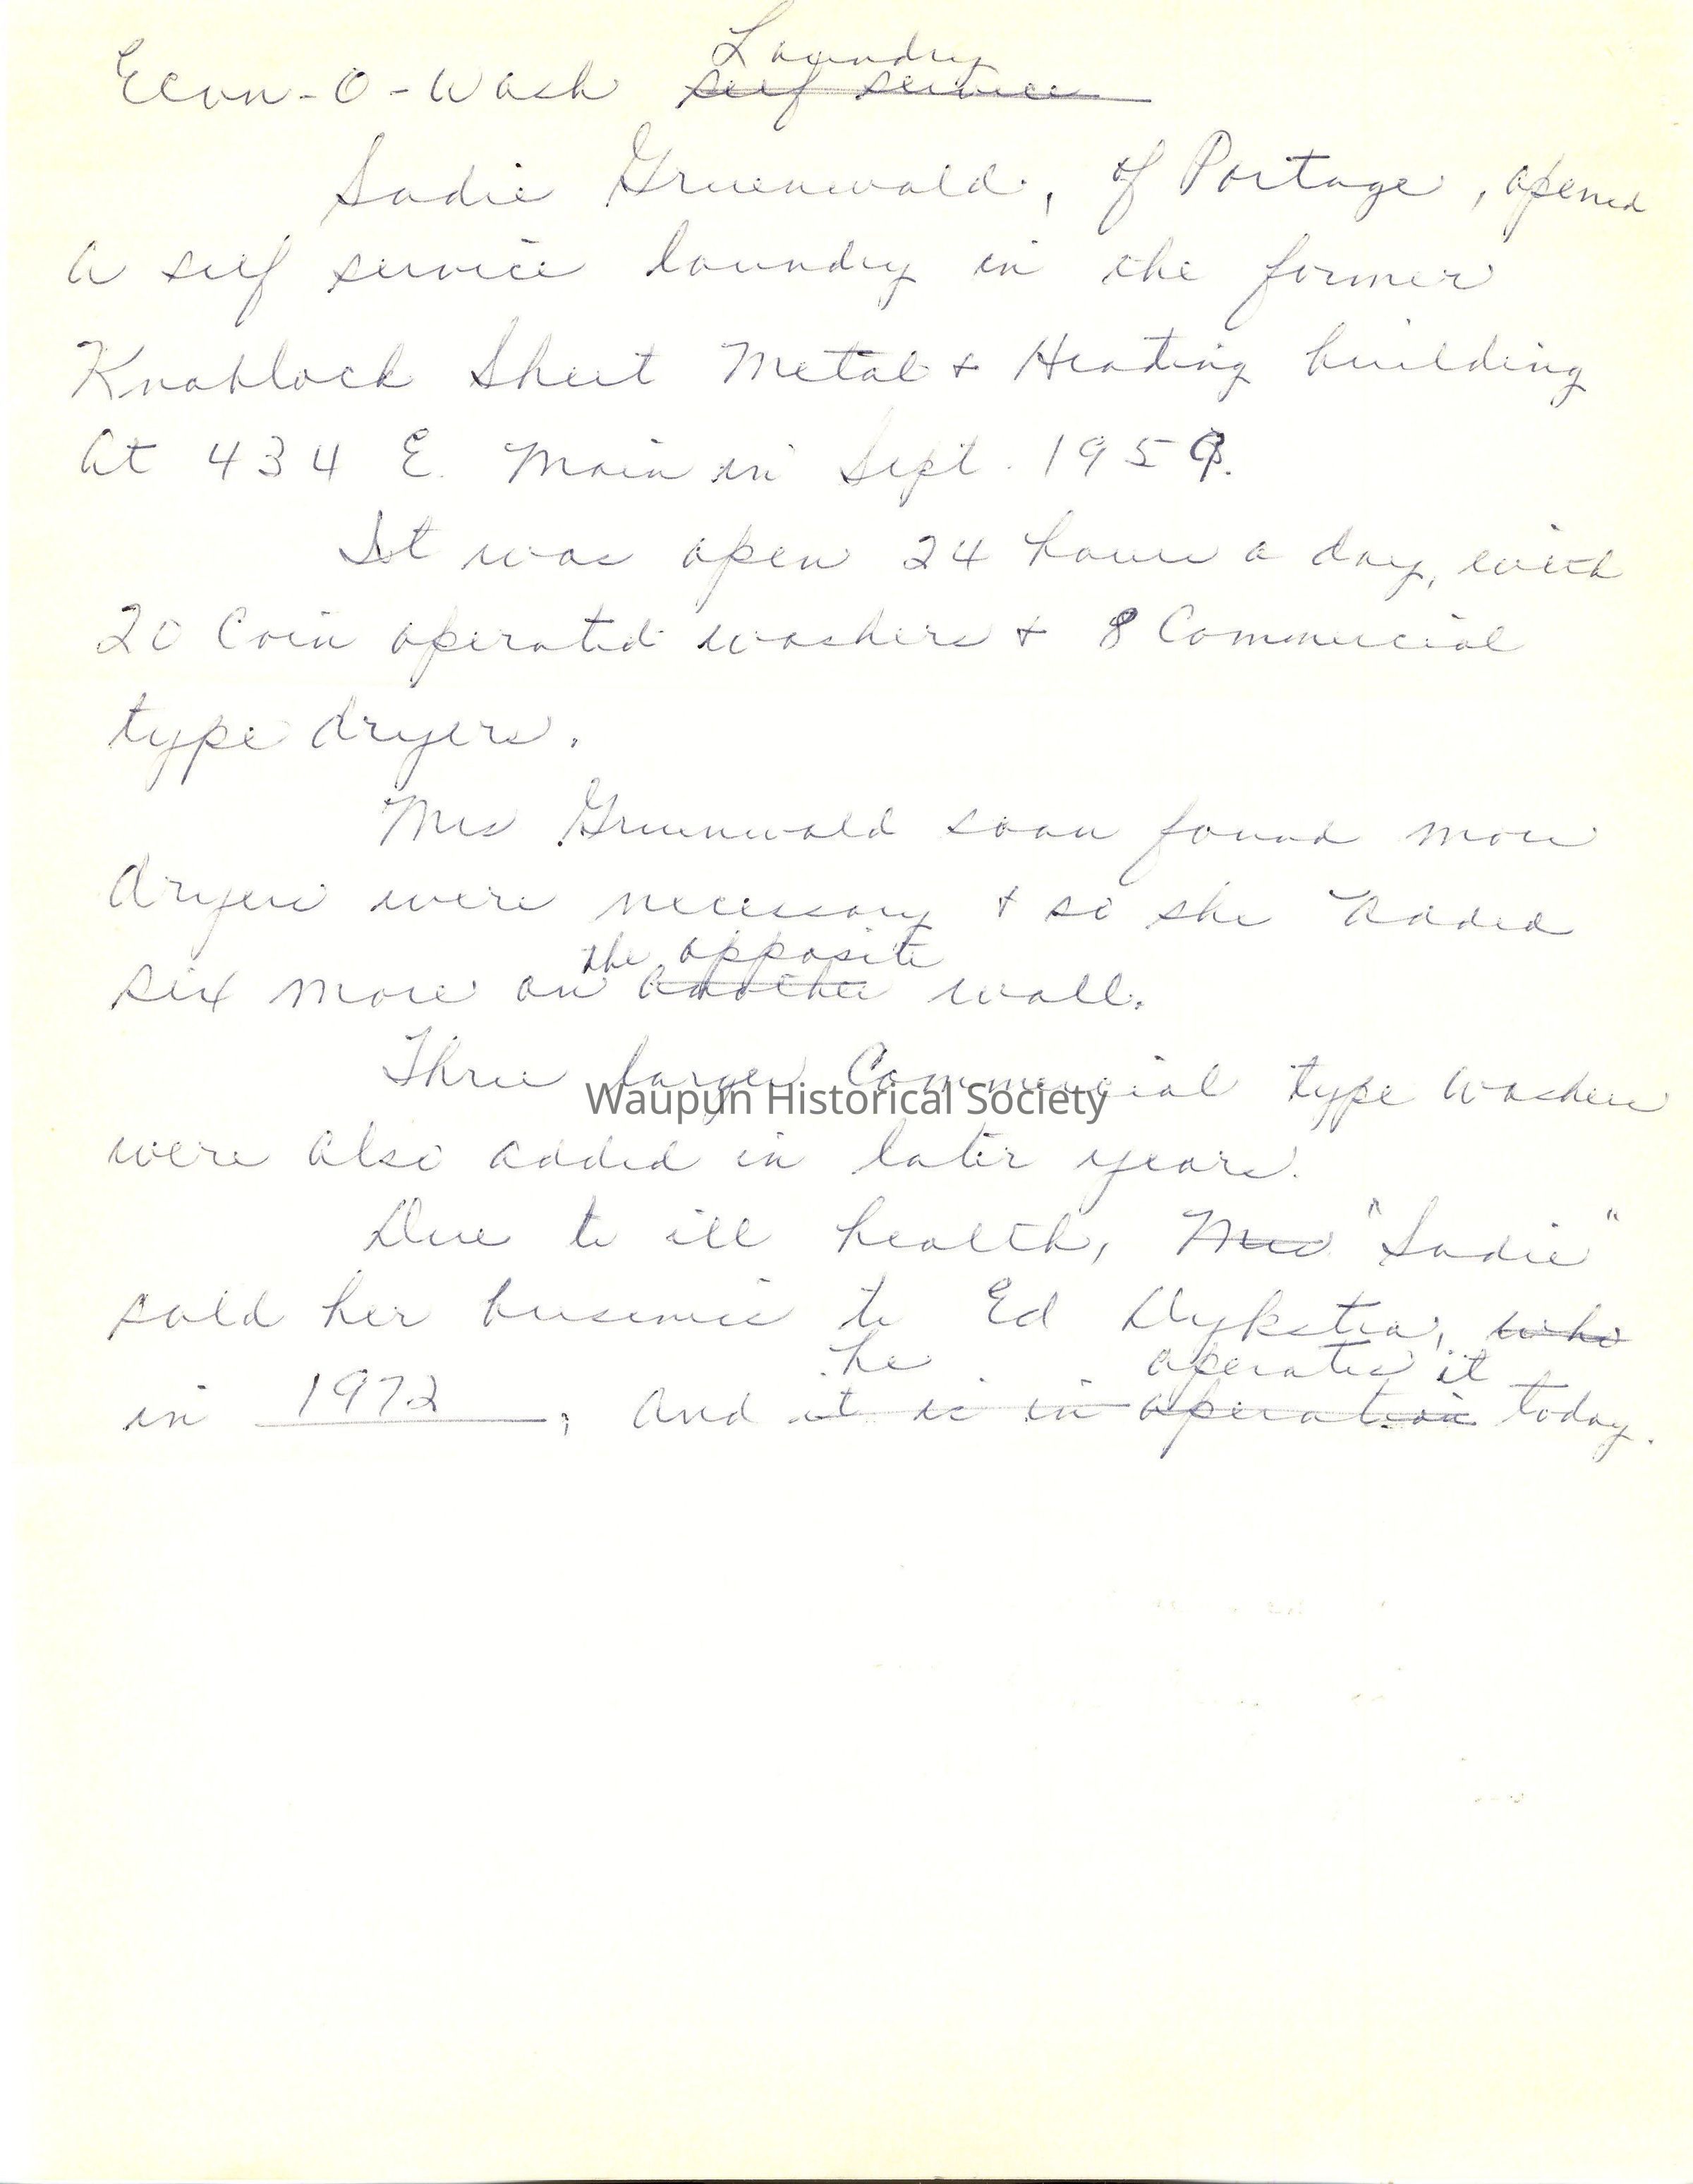 Laundry
Econ-O-Wash self service
Sadie Gruenwald, of Portage, opened
a self service laundry in the former
Knoblock Sheet Metal + Heating building
at 434 E. Main in Sept. 1959.
It was open 24 hours a day, with
20 Coin operated washers + 8 Commercial
type dryers.
Mrs Gruenwald soon found more
dryers were necessary + so she added
the opposite
six more on another wall.
Three larger Commercial type washers
Waupun Historical Society
were also added in later years.
Due to ill health, Mrs "Sadie"
sold her business to Ed Dykstra, who
he operates it
in 1972, and it is in operation today.